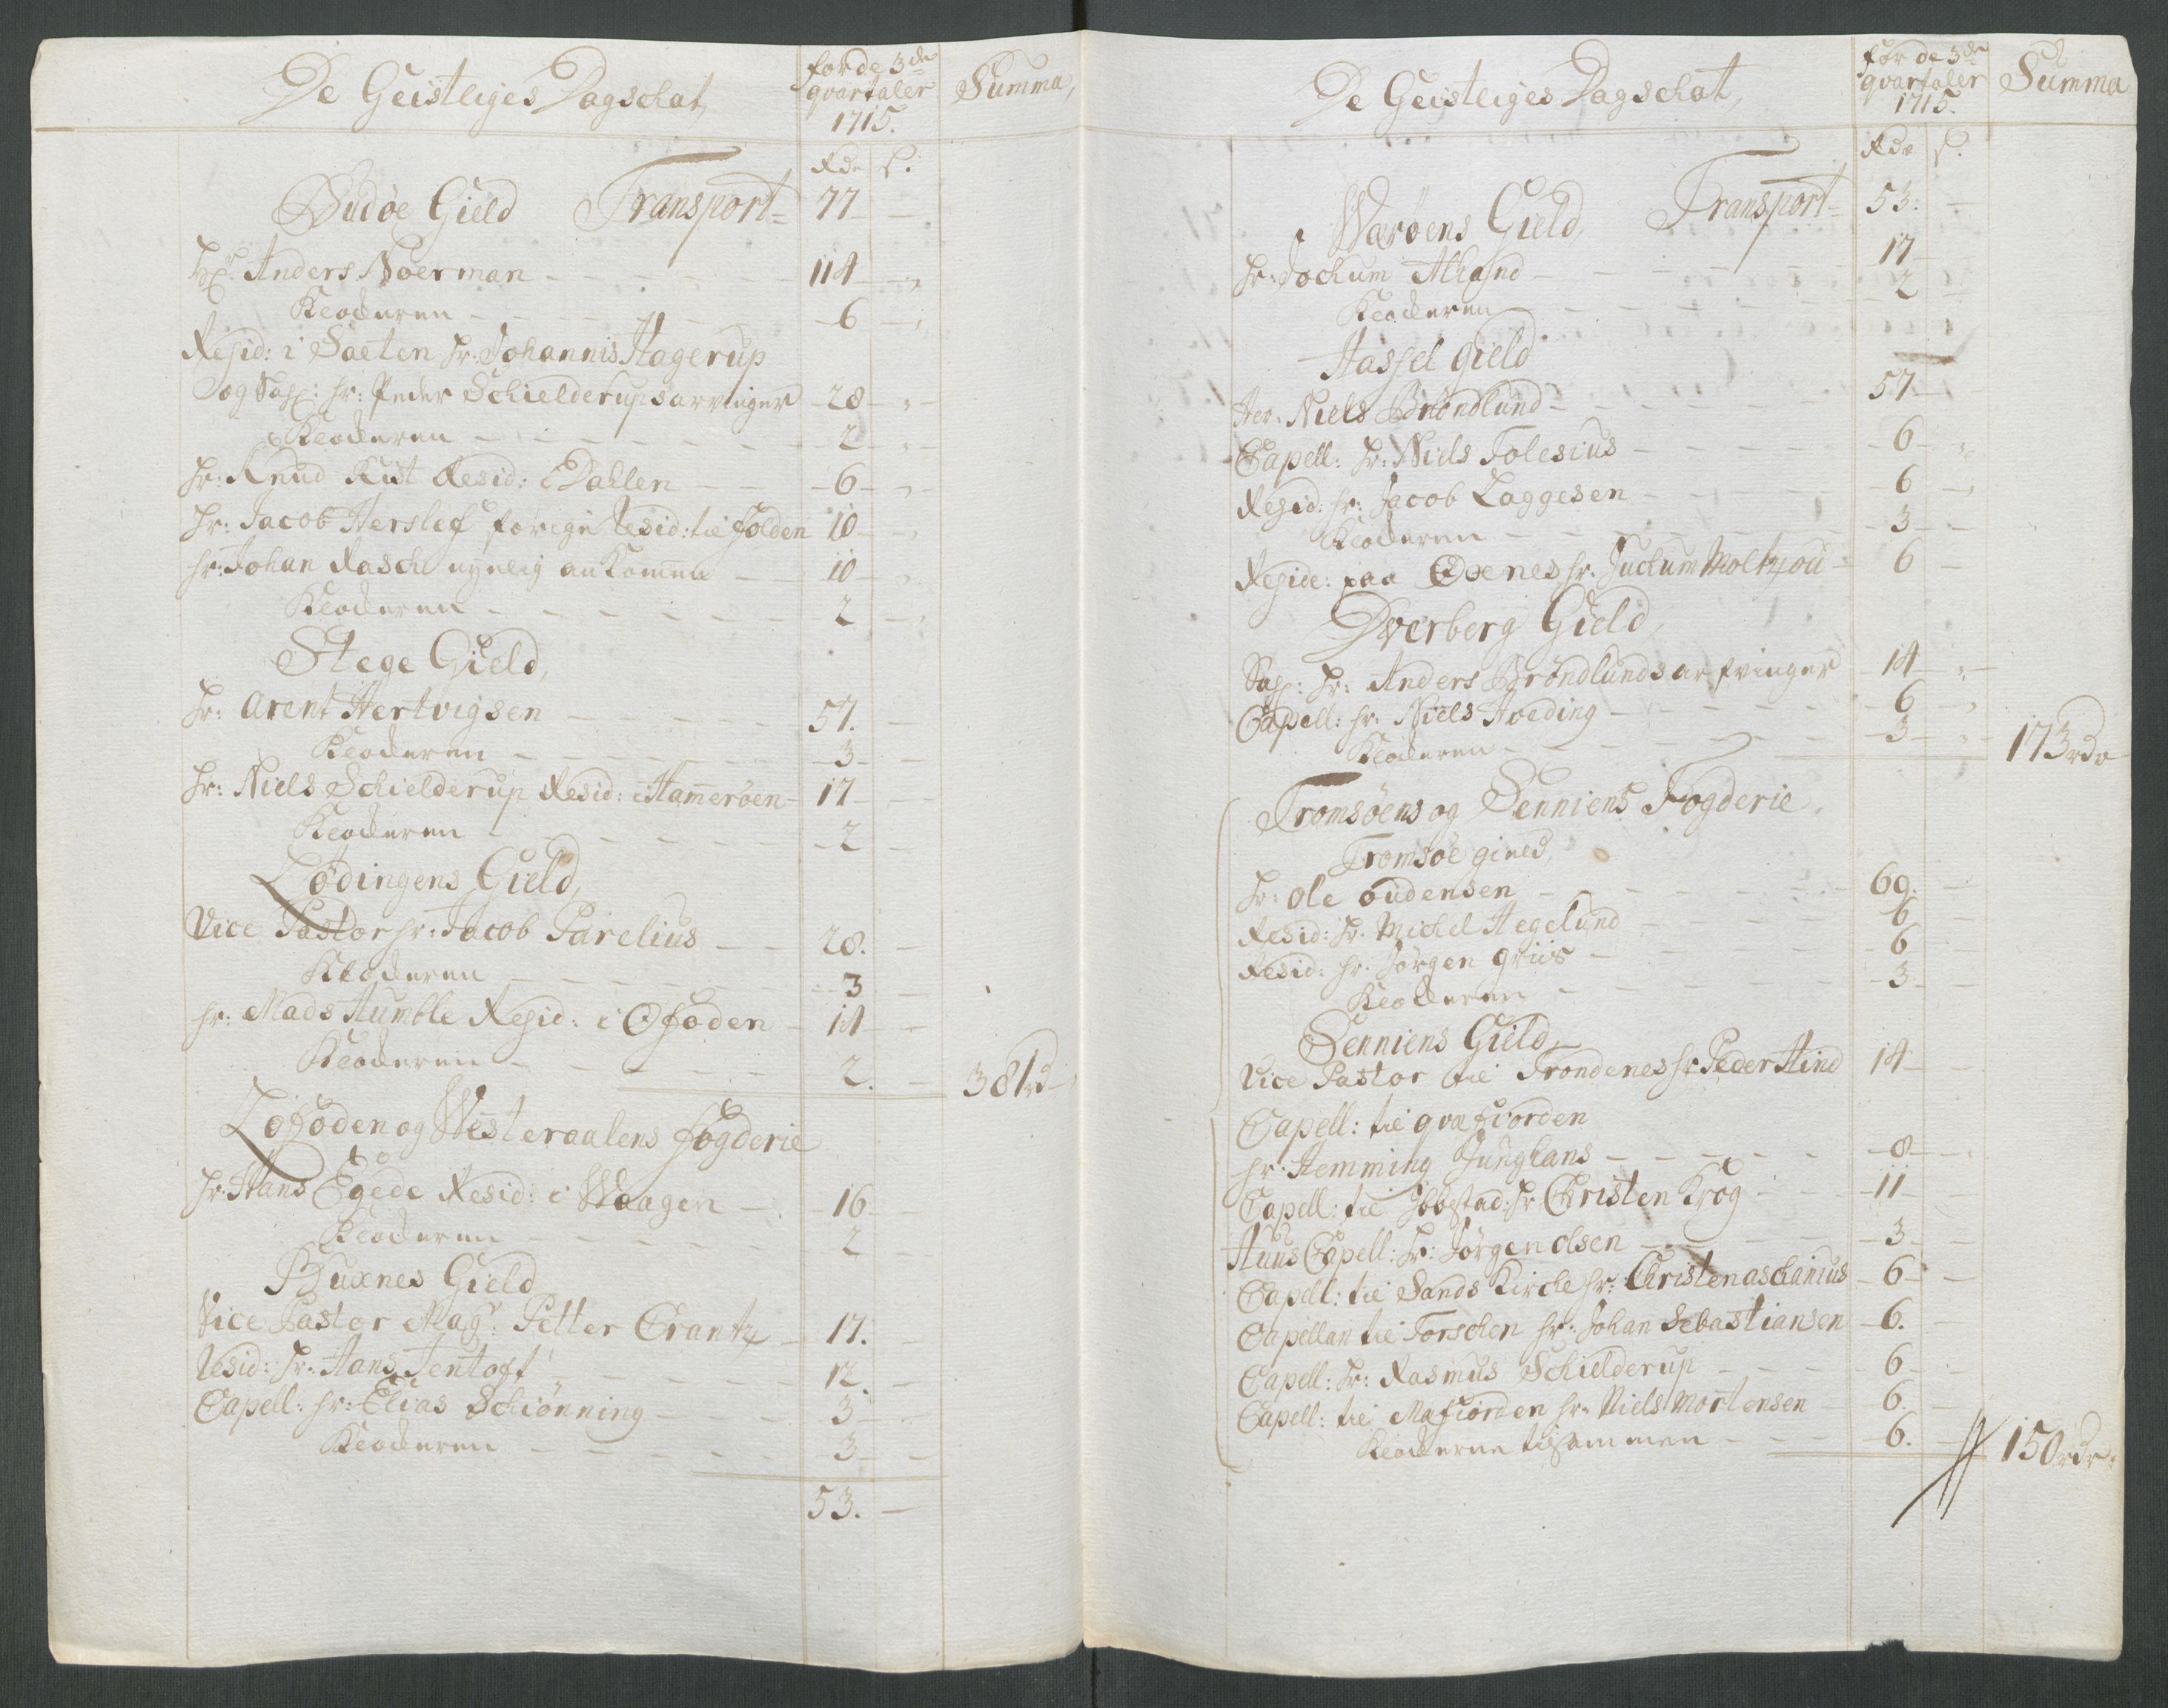 De Geistliges Dagschat,
for de 3de
qvartaler
1715.
Summa,
Rdr
s:
Budøe Gield Transport= 77 —
Hr Anders Noerman — 114 —
Klocheren — 6 —
Resid: i Saeten Hr. Johannis Hagerup
og Sahl: hr: Peder Schielderups arvinger 28 —
Klocheren — 2 —
Hr: Knud Rist Resid: i Dahlen — 6 —
Hr: Jacob Herslef forige Resid: til Folden 10 —
hr: Johan Rasch nyelig ankommen — 10 —
Klocheren — 2 —
Stege Gield,
Hr: Arent Hertvigsen — 57. —
Klocheren — 3 —
Hr: Niels Schielderup Resid: i Hamerøen 17 —
Klocheren — 2 —
Lødingens Gield,
Vice Pastor hr: Jacob Parelius — 28. —
Klocheren — 3 —
hr: Mads Humble Resid: i Ofoden — 14 —
Klocheren — 2. — 381rd
Lofoden og Westeraalens fogderie
Hr. Hans Egede Resid: i Waagen — 16 —
Klocheren — 2 —
Buxnes Gield
Vice Pastor Magr: Petter Crantz — 17.
Resid: Hr. Hans Jentoft — 12. —
Capell: hr: Elias Schiønning — 3 —
Klocheren — 3 —
53. —
De Geistliges Dagschat,
for de 3de
qvartaler
1715.
Summa
Rdr
s.
Værøens Gield, Transport= 53. —
Hr: Jochum — 17 —
Klocheren — 2 —
Hassel gield
Her. Niels Brøndlund — 57 —
Capell: Hr: Niels Tolesius — 6 —
Resid: hr: Jacob Laggesen — 6 —
Klocheren — 3 —
Reside: paa Øxenes hr. Juchum Moltzou — 6 —
Dverberg Gield,
Sahl: Hr: Anders Brøndlunds arfvinger 14 —
Capell: hr. Niels Hveding — 6 —
Klocheren — 3 — 173rdr
Tromsøens og Senniens Fogderie,
Tromsøe gield,
Hr: Ole oudensen — 69. —
Resid: Hr. Michel Hegelund — 6 —
Resid: hr. Jørgen griis — 6 —
Klocheren — 3 —
Senniens Gield,
Vice Pastor til Trondenes hr Peder Hind 14 —
Capell: til qvæfiorden
hr. Hemming Junghans — 8 —
Capell: til Ibbestad: hr Christen Krog — 11 —
Huus Capell: Hr: Jørgen Olsen — 3 —
Capell: til Sands Kirche hr: Christen aschanius 6 —
Capellan til Torschen hr. Johan Sebastiansen 6. —
Capell: Hr: Rasmus Schielderup — 6 —
Capell: til Mafiorden hr. Niels Mortensen 6. —
Klocherne tilsammen — 6. — 150rdr